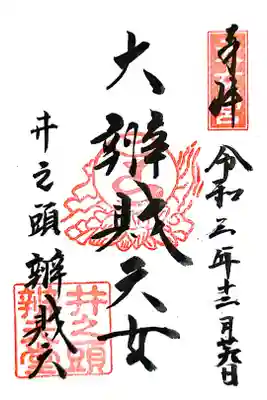 奉拝
令和三年十二月日
大辨財天女
井之頭辨財天
井之頭